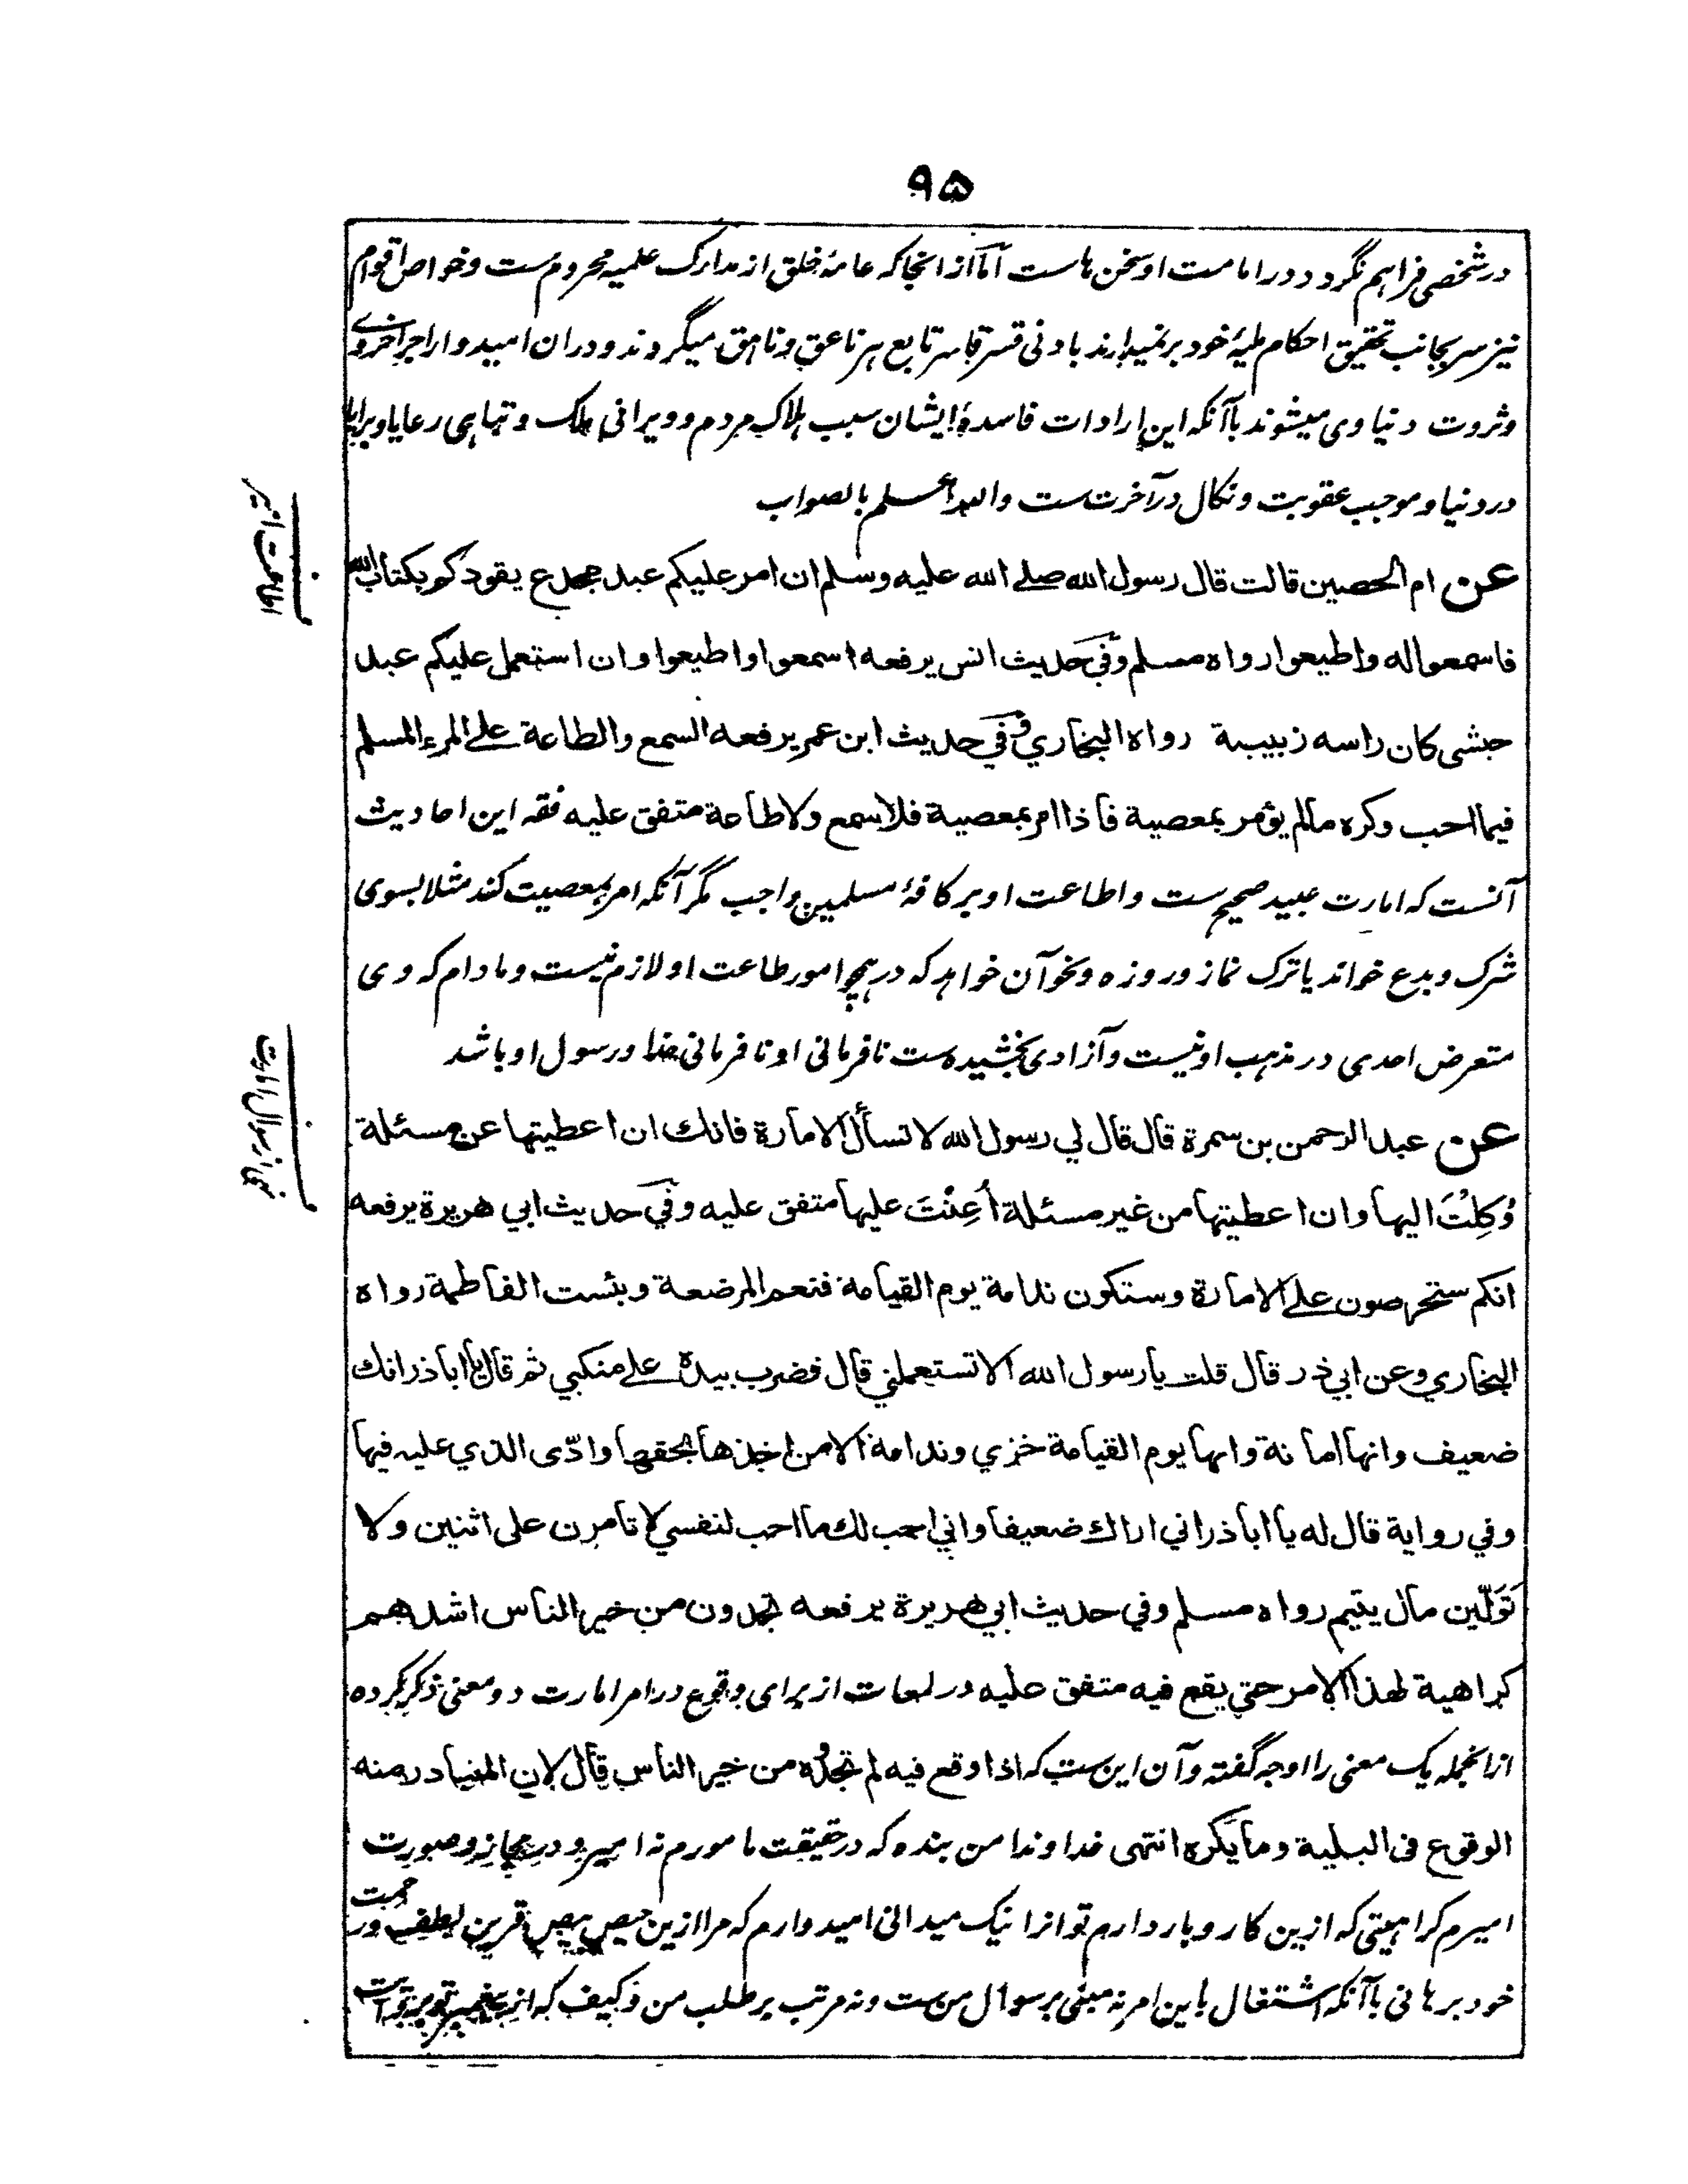 ۹۵
در شخصی فراهم نگردد در امامت او سخن هاست اما از انجا که عامهٔ خلق از مدارک علمیه محروم ست و خواص اقوام
نیز سر بجانب تحقیق احکام ملیهٔ خود بر نمیدارند بادنی قسر قاسر تابع هر ناعق و ناهق میگردند و دران امیدوار اجر اخروی
و ثروت دنیاوی میشوند باآنکه این ارادات فاسدهٔ ایشان سبب هلاک مردم و ویرانی ملک و تباهی رعایا و برایا
در دنیا و موجب عقوبت و نکال در آخرت ست والله اعلم بالصواب
عن ام الحصين قالت قال رسول الله صلے الله عليه وسلم ان امر عليكم عبد مجدع يقودكم بكتاب الله
فاسمعوا له واطيعوا رواه مسلم وفي حديث انس يرفعه اسمعوا واطيعوا وان استعمل عليكم عبد
حبشى كان راسه زبيبة رواه البخاري وفي حديث ابن عمر يرفعه السمع والطاعة علے المرء المسلم
فيما احب وكره ما لم يؤمر بمعصية فاذا امر بمعصية فلا سمع ولا طاعة متفق عليه فقه این احادیث
آنست که امارت عبید صحیح ست و اطاعت او بر کافهٔ مسلمین واجب مگر آنکه امر بمعصیت کند مثلا بسوی
شرک و بدع خواند یا ترک نماز و روزه و نحو آن خواهد که در همچو امور طاعت او لازم نیست و مادام که وی
متعرض احدی در مذهب او نیست و آزادی بخشیده ست نافرمانی او نافرمانی خدا و رسول او باشد
عن عبد الرحمن بن سمرة قال قال لي رسول الله لا تسأل الامارة فانك ان اعطيتها عن مسئلة
وُكِلْتَ اليها وان اعطيتها من غير مسئلة أُعِنْتَ عليها متفق عليه وفي حديث ابي هريرة يرفعه
انكم ستحرصون علے الامارة وستكون ندامة يوم القيامة فنعم المرضعة وبئست الفاطمة رواه
البخاري وعن ابي ذر قال قلت يا رسول الله الا تستعملني قال فضرب بيده علے منكبي ثم قال يا ابا ذر انك
ضعيف وانها امانة وانها يوم القيامة خزي وندامة الا من اخذها بحقها وادّى الذي عليه فيها
وفي رواية قال له يا ابا ذر اني اراك ضعيفا واني احب لك ما احب لنفسي لا تامرن على اثنين ولا
تَوَلَّين مال يتيم رواه مسلم وفي حديث ابي هريرة يرفعه تجدون من خير الناس اشدهم
كراهية لهذا الامر حتى يقع فيه متفق عليه در لمعات از برای وقوع در امر امارت دو معنی ذکر کرده
ازانجمله یک معنی را اوجه گفته و آن این ست که اذا وقع فيه لم تجدوه من خير الناس قال لان المتبادر منه
الوقوع فى البلية وما يكره انتهی خداوندا من بنده که در حقیقت مامورم نه امیر و در مجاز و صورت
امیرم کراهیتی که ازین کار و بار دارم تو انرا نیک میدانی امیدوارم که مرا ازین حیص بیص قرین لطف و رحمت
خود برهانی باآنکه اشتغال باین امر نه مبنی بر سوال من ست و نه مرتب بر طلب من و کیف که از پیغمبر تو
اطاعت امیر
نهی از سوال امارت